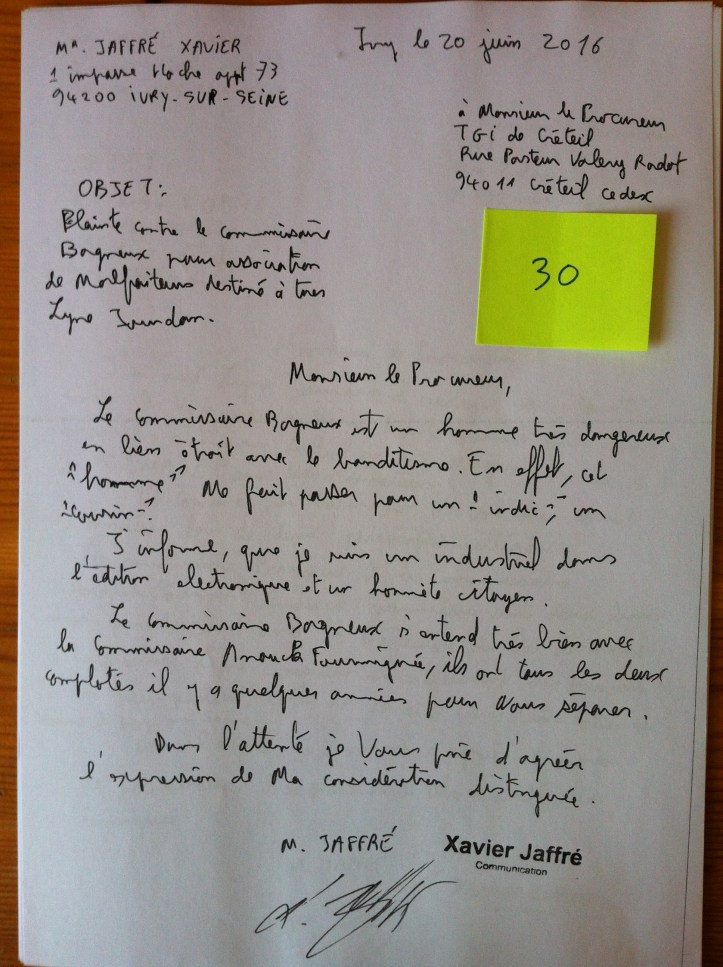 Mr. JAFFRÉ XAVIER
1 impasse Hoche appt 73
94200 IVRY-SUR-SEINE
Ivry le 20 juin 2016
à Monsieur le Procureur
TGI de Créteil
Rue Pasteur Valery Radot
94011 Créteil cedex
30
OBJET:
Plainte contre le commissaire
Bagneux pour association
de Malfaiteurs destiné à tuer
Lyne Jourdan.
Monsieur le Procureur,
Le commissaire Bagneux est un homme très dangereux
en lien étroit avec le banditisme. En effet, cet
"homme" Me fait passer pour un "indic", un
J'informe, que je suis un industriel dans
l'édition électronique et un honnête citoyen.
Le commissaire Bagneux s'entend très bien avec
la Commissaire Anouck Fourmigué, ils ont tous les deux
complotés il y a quelques années pour nous séparer.
Dans l'attente je Vous prie d'agréer
l'expression de Ma considération distinguée.
M. JAFFRÉ
Xavier Jaffré
Communication